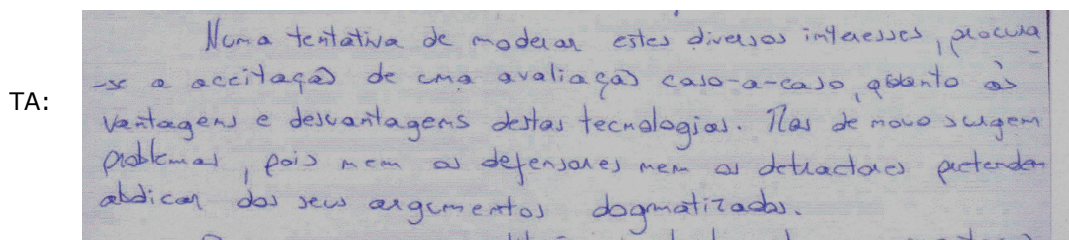 TA:
Numa tentativa de moderar estes diversos interesses, procura
-se a aceitação de uma avaliação caso-a-caso, quanto às
vantagens e desvantagens destas tecnologias. Mas de novo surgem
problemas, pois nem os defensores nem os detractores pretendem
abdicar dos seus argumentos dogmatizados.